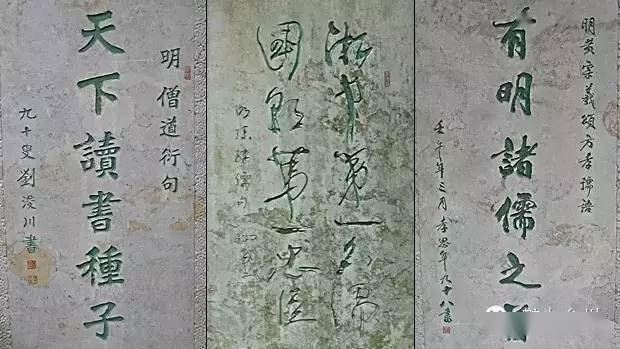 明僧道衍句
天下讀書種子
九十叟劉浚川書
浙 第一名儒
國朝第一忠臣
明陳 儒句
明黄宗羲頌方孝孺語
有明諸儒之首
壬午年三月 年九十八書